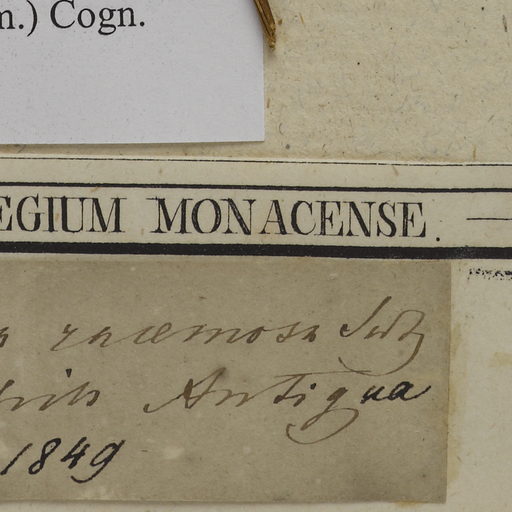 m.) Cogn.
EGIUM MONACENSE.
racemosa Sw
Antigua
1849